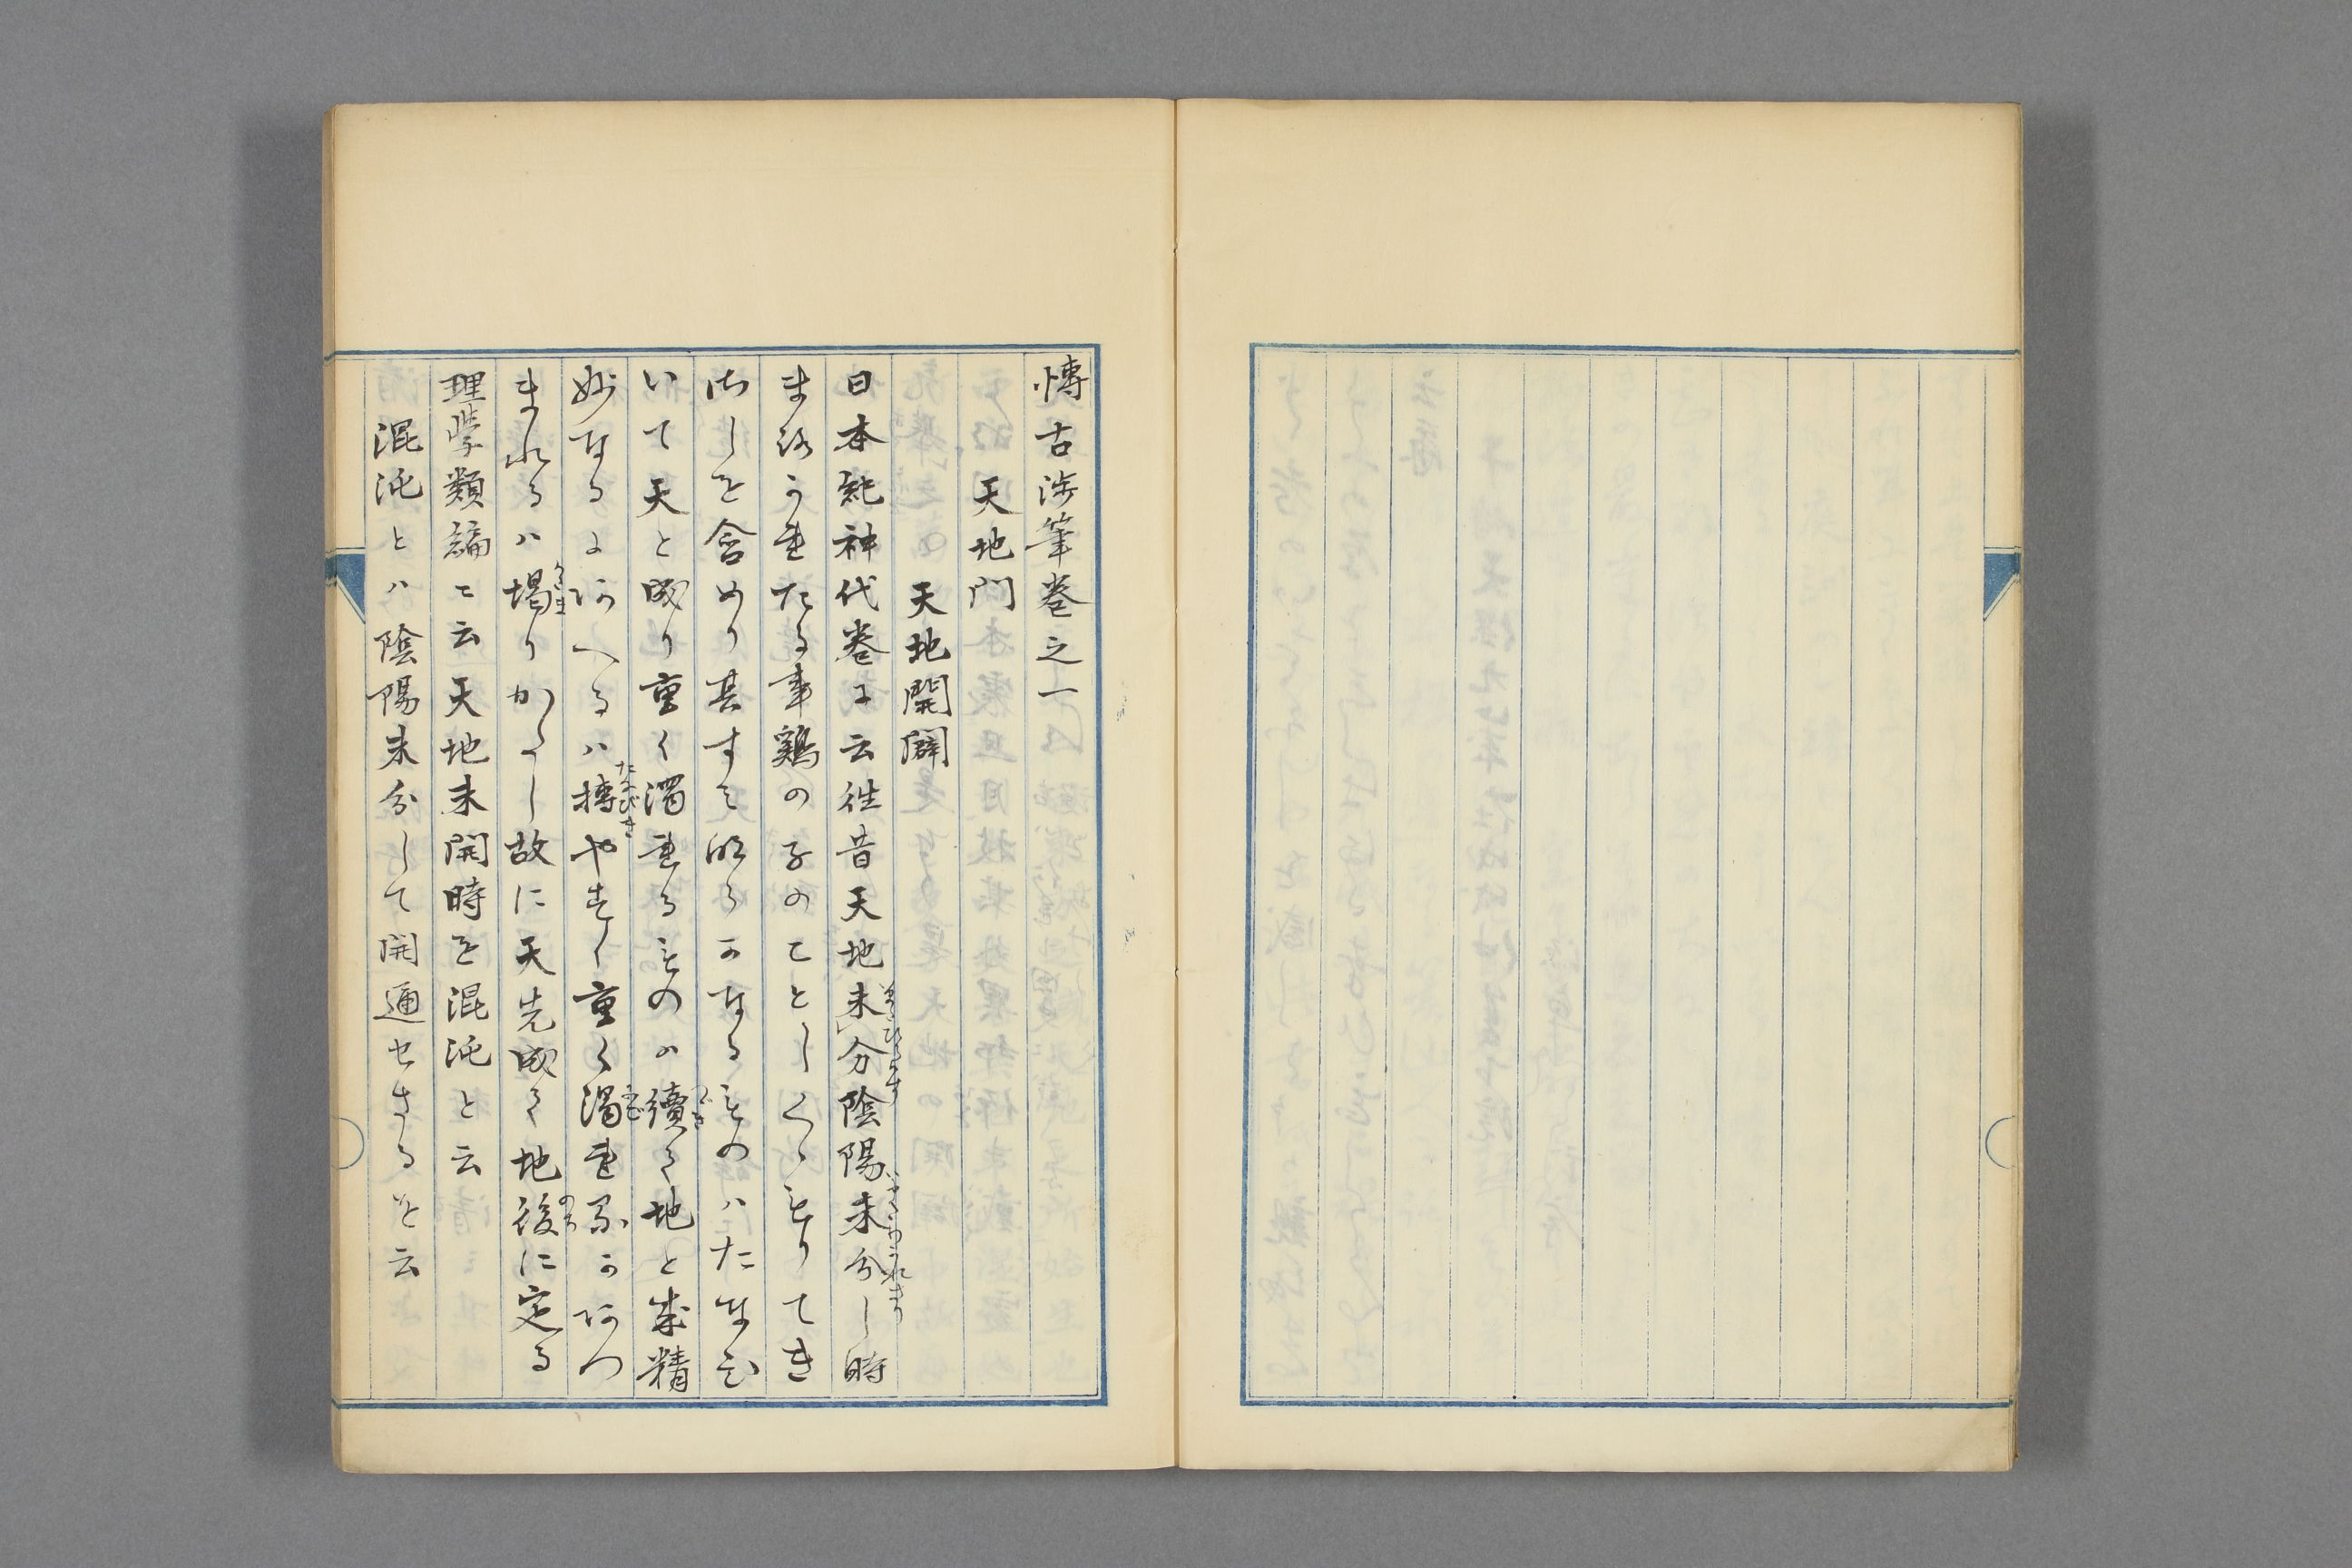 博古渉筆巻之一
天地門
天地開闢
日本紀神代巻に云徃昔天地未分陰陽未分し時
まろかれたる事鶏の子のことしくゝもりてき
さしを含めり其すみ明らかなるものはたなひ
いて天と成り重く濁れるものは續て地と成精
妙なるにあへるは摶やすく重く濁れるかあつ
まれるは堨りかたし故に天先成て地後に定る
理学類編ニ云天地未開時を混沌と云
混沌とハ陰陽未分して開通せさるを云